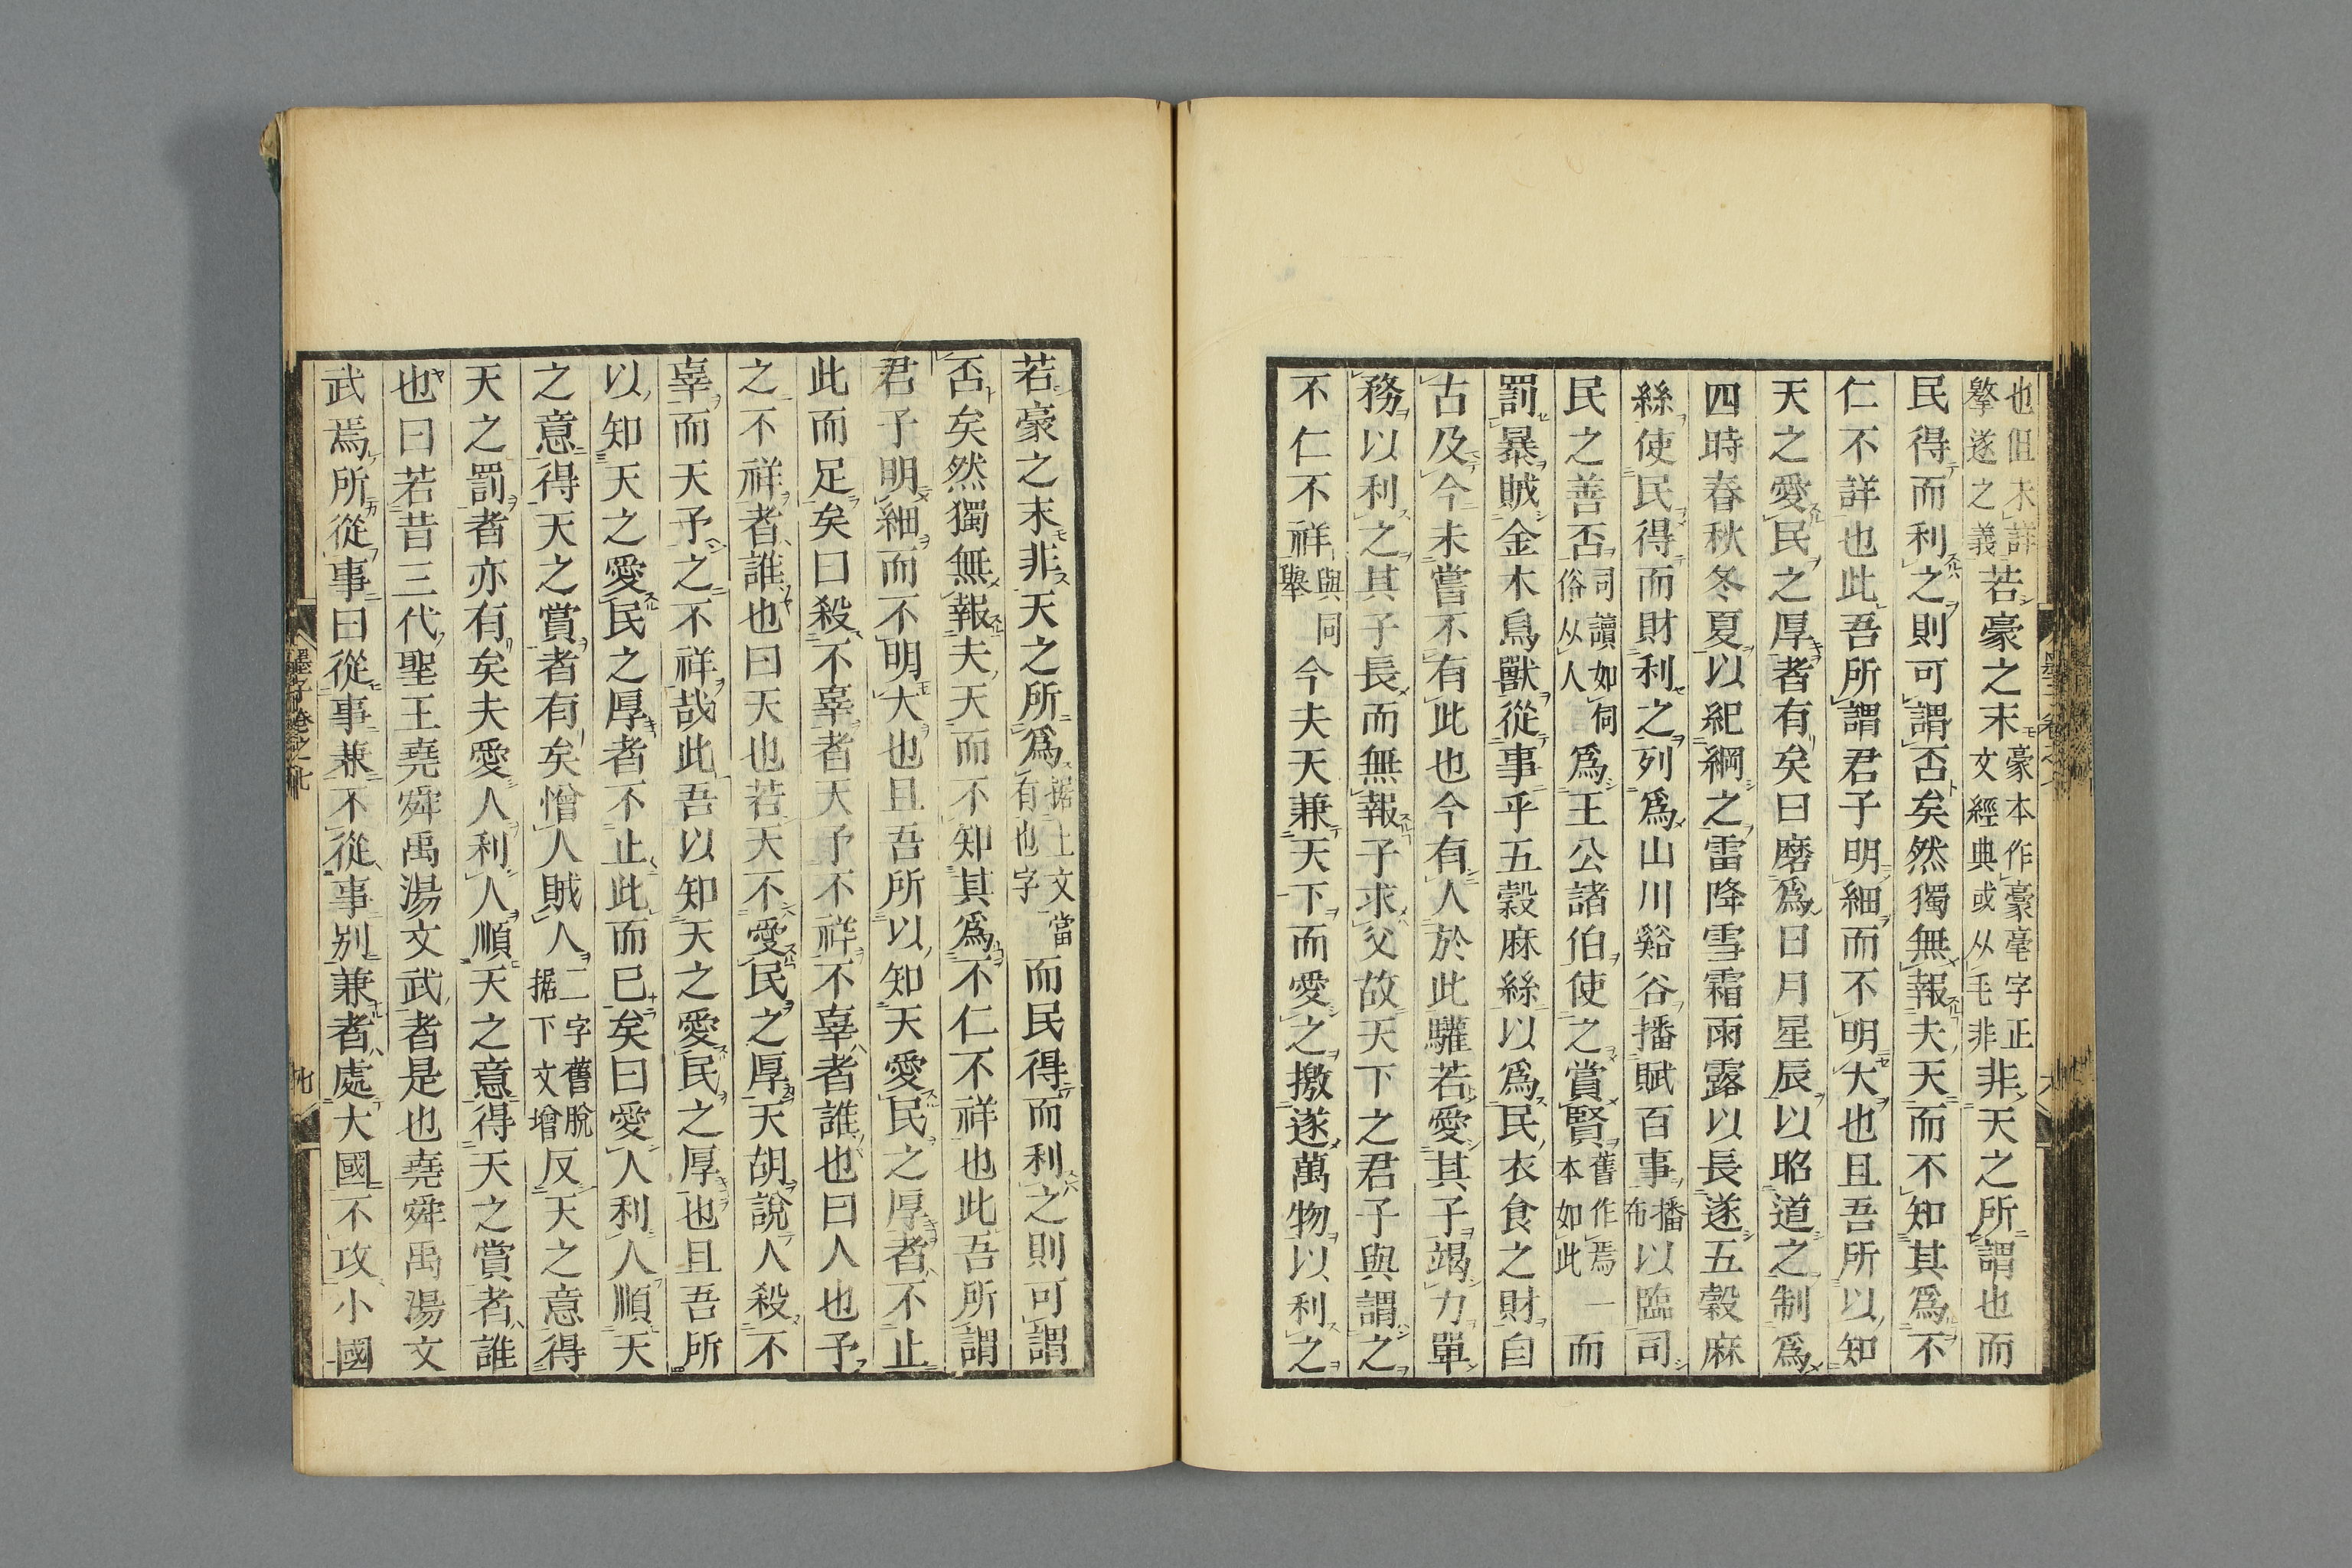 也但未詳
遂之義
若豪之末
豪本作豪毫字正
文經典或从毛非
非天之所謂也而
民得而利之則可謂否矣然獨無報夫天而不知其爲不
仁不詳也此吾所謂君子明細而不明大也且吾所以知
天之愛民之厚者有矣曰磨爲日月星辰以昭道之制爲
四時春秋冬夏以紀綱之雷降雪霜雨露以長遂五穀麻
絲使民得而財利之列爲山川谿谷播賦百事
播
布
以臨司
民之善否
司讀如伺
俗从人
爲王公諸伯使之賞賢
舊作焉一
本如此
而
罰暴賊金木鳥獸從事乎五穀麻絲以爲民衣食之財自
古及今未嘗不有此也今有人於此驩若愛其子竭力單
務以利之其子長而無報子求父故天下之君子與謂之
不仁不祥
與同
舉
今夫天兼天下而愛之撽遂萬物以利之
若豪之末非天之所爲
据上文當
有也字
而民得而利之則可謂
否矣然獨無報夫天而不知其爲不仁不祥也此吾所謂
君子明細而不明大也且吾所以知天愛民之厚者不止
此而足矣曰殺不辜者天予不祥不辜者誰也曰人也予
之不祥者誰也曰天也若天不愛民之厚天胡說人殺不
辜而天予之不祥哉此吾以知天之愛民之厚也且吾所
以知天之愛民之厚者不止此而已矣曰愛人利人順天
之意得天之賞者有矣憎人賊人
二字舊脫
据下文增
反天之意得
天之罰者亦有矣夫愛人利人順天之意得天之賞者誰
也曰若昔三代聖王堯舜禹湯文武者是也堯舜禹湯文
武焉所從事曰從事兼不從事別兼者處大國不攻小國
墨子卷之七